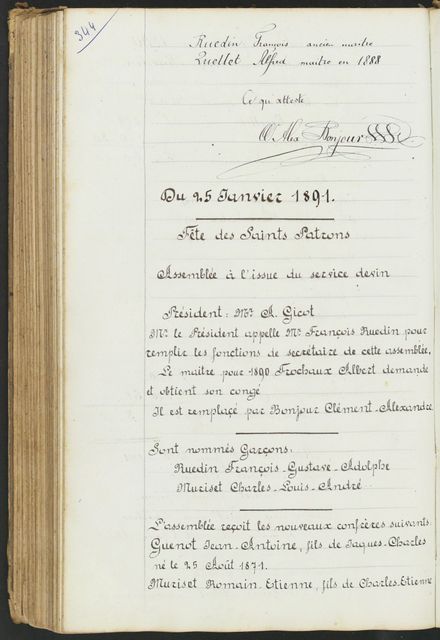 344
Ruedin François ancien maître
Quellet Alfred maître en 1888
Ce qu'atteste
Ct Alex Bonjour
Du 25 Janvier 1891.
Fête des Saints Patrons
Assemblée à l'issue du service devin
Président: Mr A. Gicot
Mr le Président appelle Mr François Ruedin pour
remplir les fonctions de secrétaire de cette assemblée.
Le maître pour 1890 Frochaux Albert demande
et obtient son congé
Il est remplacé par Bonjour Clément-Alexandre
Sont nommés Garçons:
Ruedin François-Gustave-Adolphe
Muriset Charles-Louis-André
L'assemblée reçoit les nouveaux confrères suivants
Guenot Jean-Antoine, fils de Jaques-Charles
né le 25 Août 1871.
Muriset Romain-Etienne, fils de Charles-Etienne